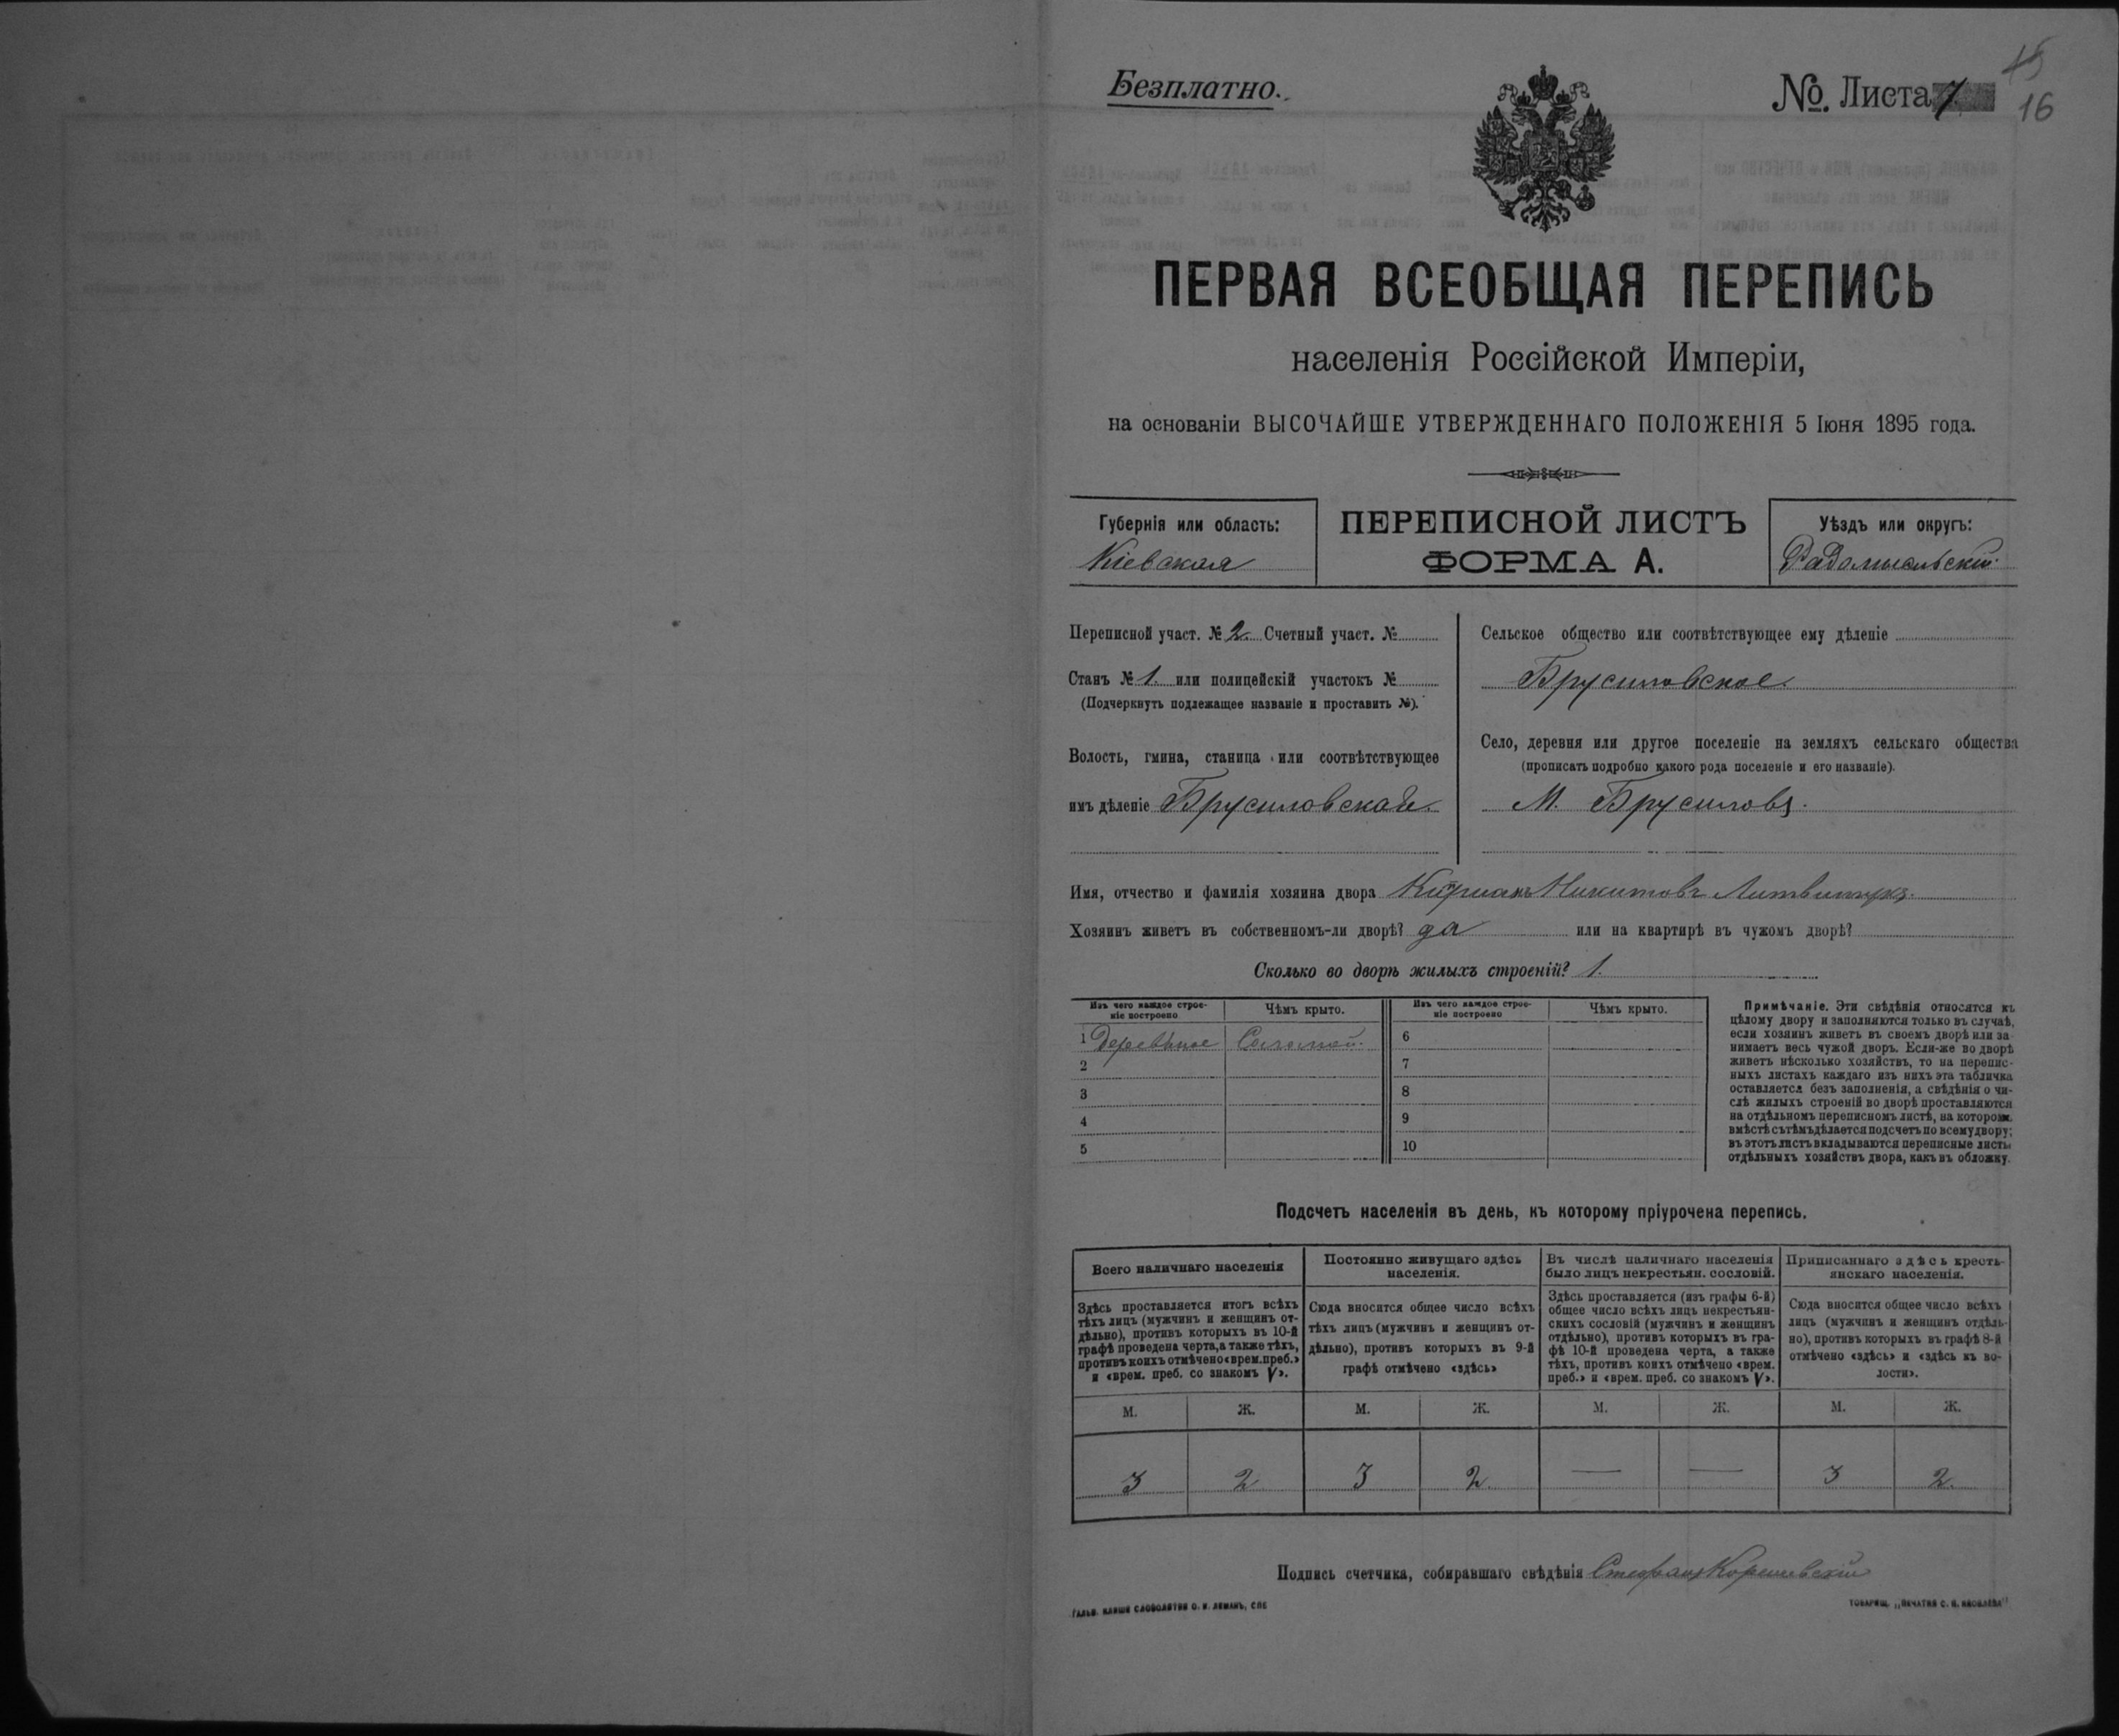 Безплатно.
№. Листа 7
15
16
ПЕРВАЯ ВСЕОБЩАЯ ПЕРЕПИСЬ
населенія Россійской Имперіи,
на основаніи ВЫСОЧАЙШЕ УТВЕРЖДЕННАГО ПОЛОЖЕНІЯ 5 Іюня 1895 года.
Губернія или область:
Кіевская
ПЕРЕПИСНОЙ ЛИСТЪ
ФОРМА А.
Уѣздъ или округъ:
Радомысльскій.
Переписной участ. № 2. Счетный участ. №
Станъ № 1. или полицейскій участокъ №
(Подчеркнуть подлежащее названіе и проставить №).
Волость, гмина, станица или соотвѣтствующее
имъ дѣленіе Брусиловская.
Сельское общество или соотвѣтствующее ему дѣленіе
Брусиловское.
Село, деревня или другое поселеніе на земляхъ сельскаго общества
(прописать подробно какого рода поселеніе и его названіе).
М. Брусиловъ.
Имя, отчество и фамилія хозяина двора Никитовъ
Хозяинъ живетъ въ собственномъ-ли дворѣ? да или на квартирѣ въ чужомъ дворѣ?
Сколько во дворѣ жилыхъ строеній? 1.
Изъ чего каждое строе-
ніе построено
Чѣмъ крыто.
Изъ чего каждое строе-
ніе построено
Чѣмъ крыто.
1 Деревянное Соломой.
2
3
4
5
6
7
8
9
10
Примѣчаніе. Эти свѣдѣнія относятся къ
цѣлому двору и заполняются только въ случаѣ,
если хозяинъ живетъ въ своемъ дворѣ или за-
нимаетъ весь чужой дворъ. Если-же во дворѣ
живетъ нѣсколько хозяйствъ, то на перепис-
ныхъ листахъ каждаго изъ нихъ эта табличка
оставляется безъ заполненія, а свѣдѣнія о чи-
слѣ жилыхъ строеній во дворѣ проставляются
на отдѣльномъ переписномъ листѣ, на которомъ
вмѣстѣ съ тѣмъ дѣлается подсчетъ по всему двору;
въ этотъ листъ вкладываются переписные листы
отдѣльныхъ хозяйствъ двора, какъ въ обложку.
Подсчетъ населенія въ день, къ которому пріурочена перепись.
Всего наличнаго населенія
Здѣсь проставляется итогъ всѣхъ
тѣхъ лицъ (мужчинъ и женщинъ от-
дѣльно), противъ которыхъ въ 10-й
графѣ проведена черта, а также тѣхъ,
противъ коихъ отмѣчено «врем. преб.»
и «врем. преб. со знакомъ V».
Постоянно живущаго здѣсь
населенія.
Сюда вносится общее число всѣхъ
тѣхъ лицъ (мужчинъ и женщинъ от-
дѣльно), противъ которыхъ въ 9-й
графѣ отмѣчено «здѣсь»
Въ числѣ наличнаго населенія
было лицъ некрестьян. сословій.
Здѣсь проставляется (изъ графы 6-й)
общее число всѣхъ лицъ некрестьян-
скихъ сословій (мужчинъ и женщинъ
отдѣльно), противъ которыхъ въ гра-
фѣ 10-й проведена черта, а также
тѣхъ, противъ коихъ отмѣчено «врем.
преб.» и «врем. преб. со знакомъ V».
Приписаннаго здѣсь кресть-
янскаго населенія.
Сюда вносится общее число всѣхъ
лицъ (мужчинъ и женщинъ отдѣль-
но), противъ которыхъ въ графѣ 8-й
отмѣчено «здѣсь» и «здѣсь къ во-
лости».
М. Ж. М. Ж. М. Ж. М. Ж.
3 2 3 2. — — 3 2.
Подпись счетчика, собиравшаго свѣдѣнія Стефанъ
ГАЛЬВ. КЛИШЕ СЛОВОЛИТНИ О. И. ЛЕМАНЪ, СПБ
ТОВАРИЩ. „ПЕЧАТНЯ С. П. ЯКОВЛЕВА"